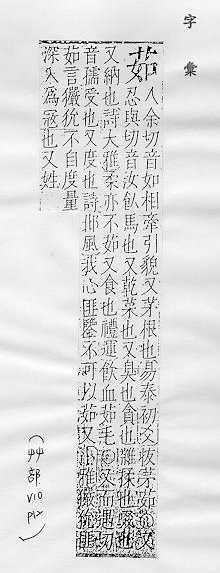 字彙
茹
人余切音如相牽引貌又茅根也易泰初爻拔茅茹又
忍與切音汝飲馬也又乾菜也又臭也貪也雜揉也
又納也詩大雅柔亦不茹又食也禮運飲血茹毛○又而遇切
音孺受也又度也詩邶風我心匪鑒不可以茹又小雅玁狁匪
茹言玁狁不自度量
深入為寇也又姓
(艸部 V10 P12)